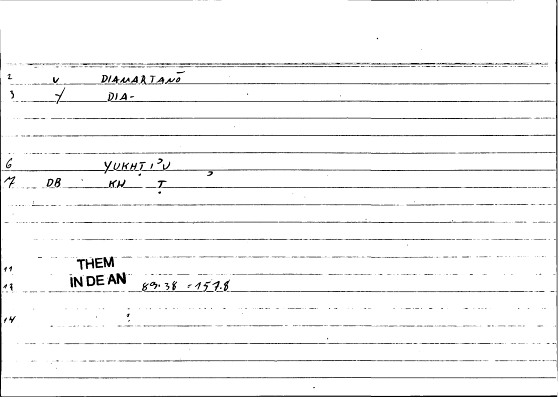 2 v DIAMARTANŌ
3 Y DIA-
6 YUKHṬIʾU
7 DB KH Ṭ ʾ
11 THEM
13 IN DE AN 89.38 = 151.8
14 :